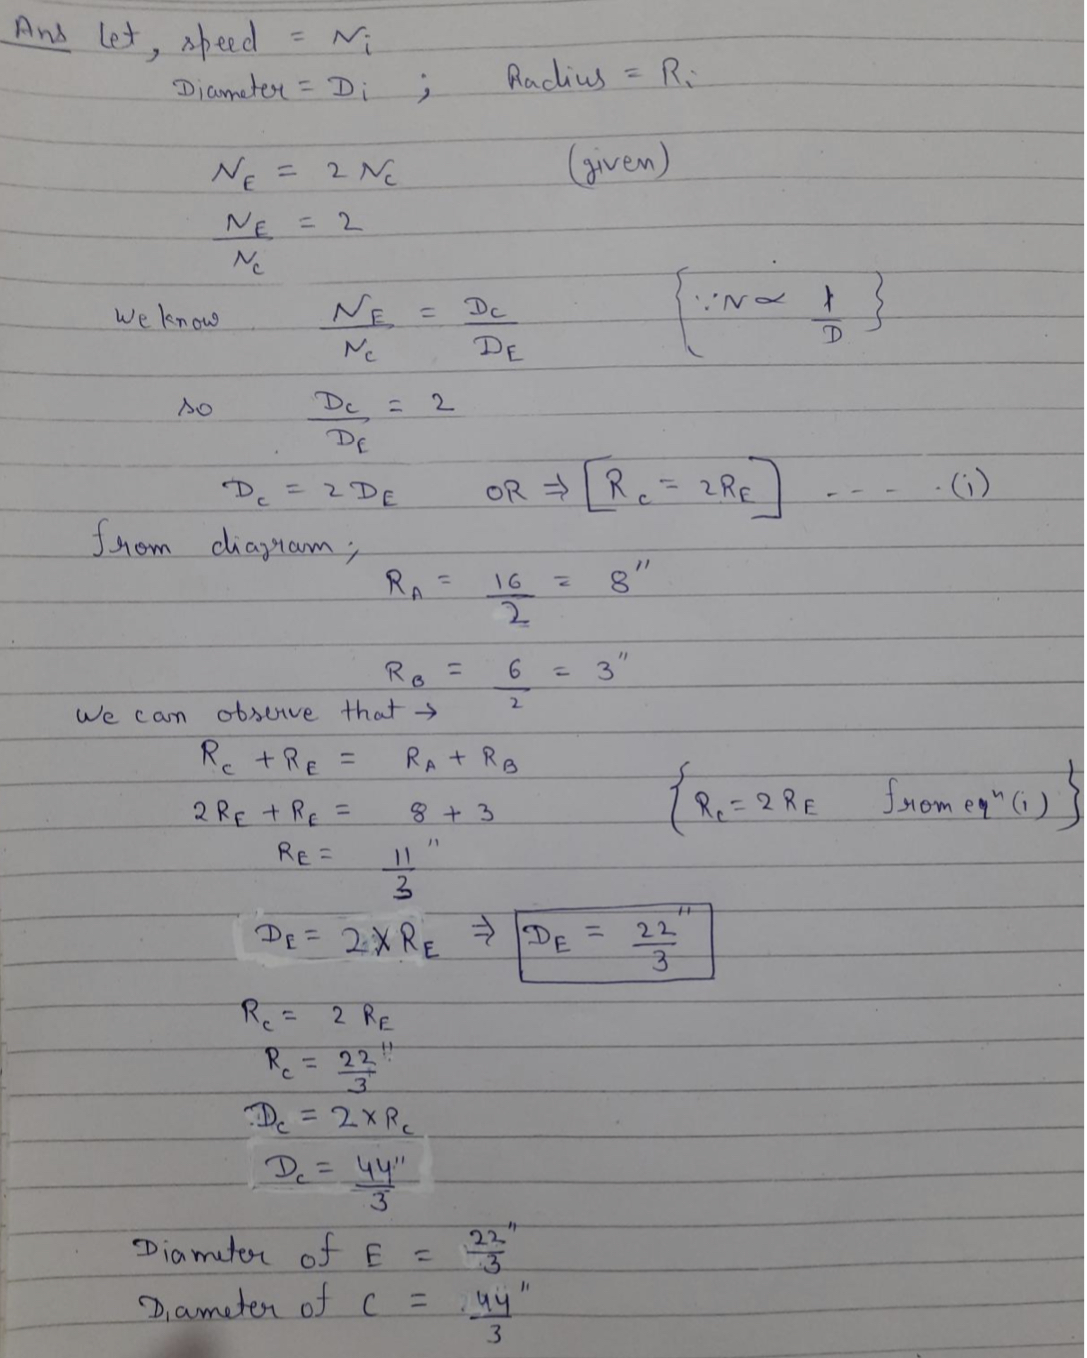 Ans let, speed = Ni
Diameter = Di ; Radius = Ri
NE = 2 Nc (given)
NE/Nc = 2
We know NE/Nc = Dc/DE {∵ N ∝ 1/D}
so Dc/DE = 2
Dc = 2 DE OR ⇒ [Rc = 2RE] - - - - . (i)
from diagram;
RA = 16/2 = 8"
RB = 6/2 = 3"
We can observe that →
Rc + RE = RA + RB
2RE + RE = 8 + 3 {Rc = 2 RE from eqn (i)}
RE = 11/3"
DE = 2 X RE ⇒ DE = 22/3"
Rc = 2 RE
Rc = 22/3"
Dc = 2 x Rc
Dc = 44/3"
Diameter of E = 22/3"
Diameter of C = 44/3"